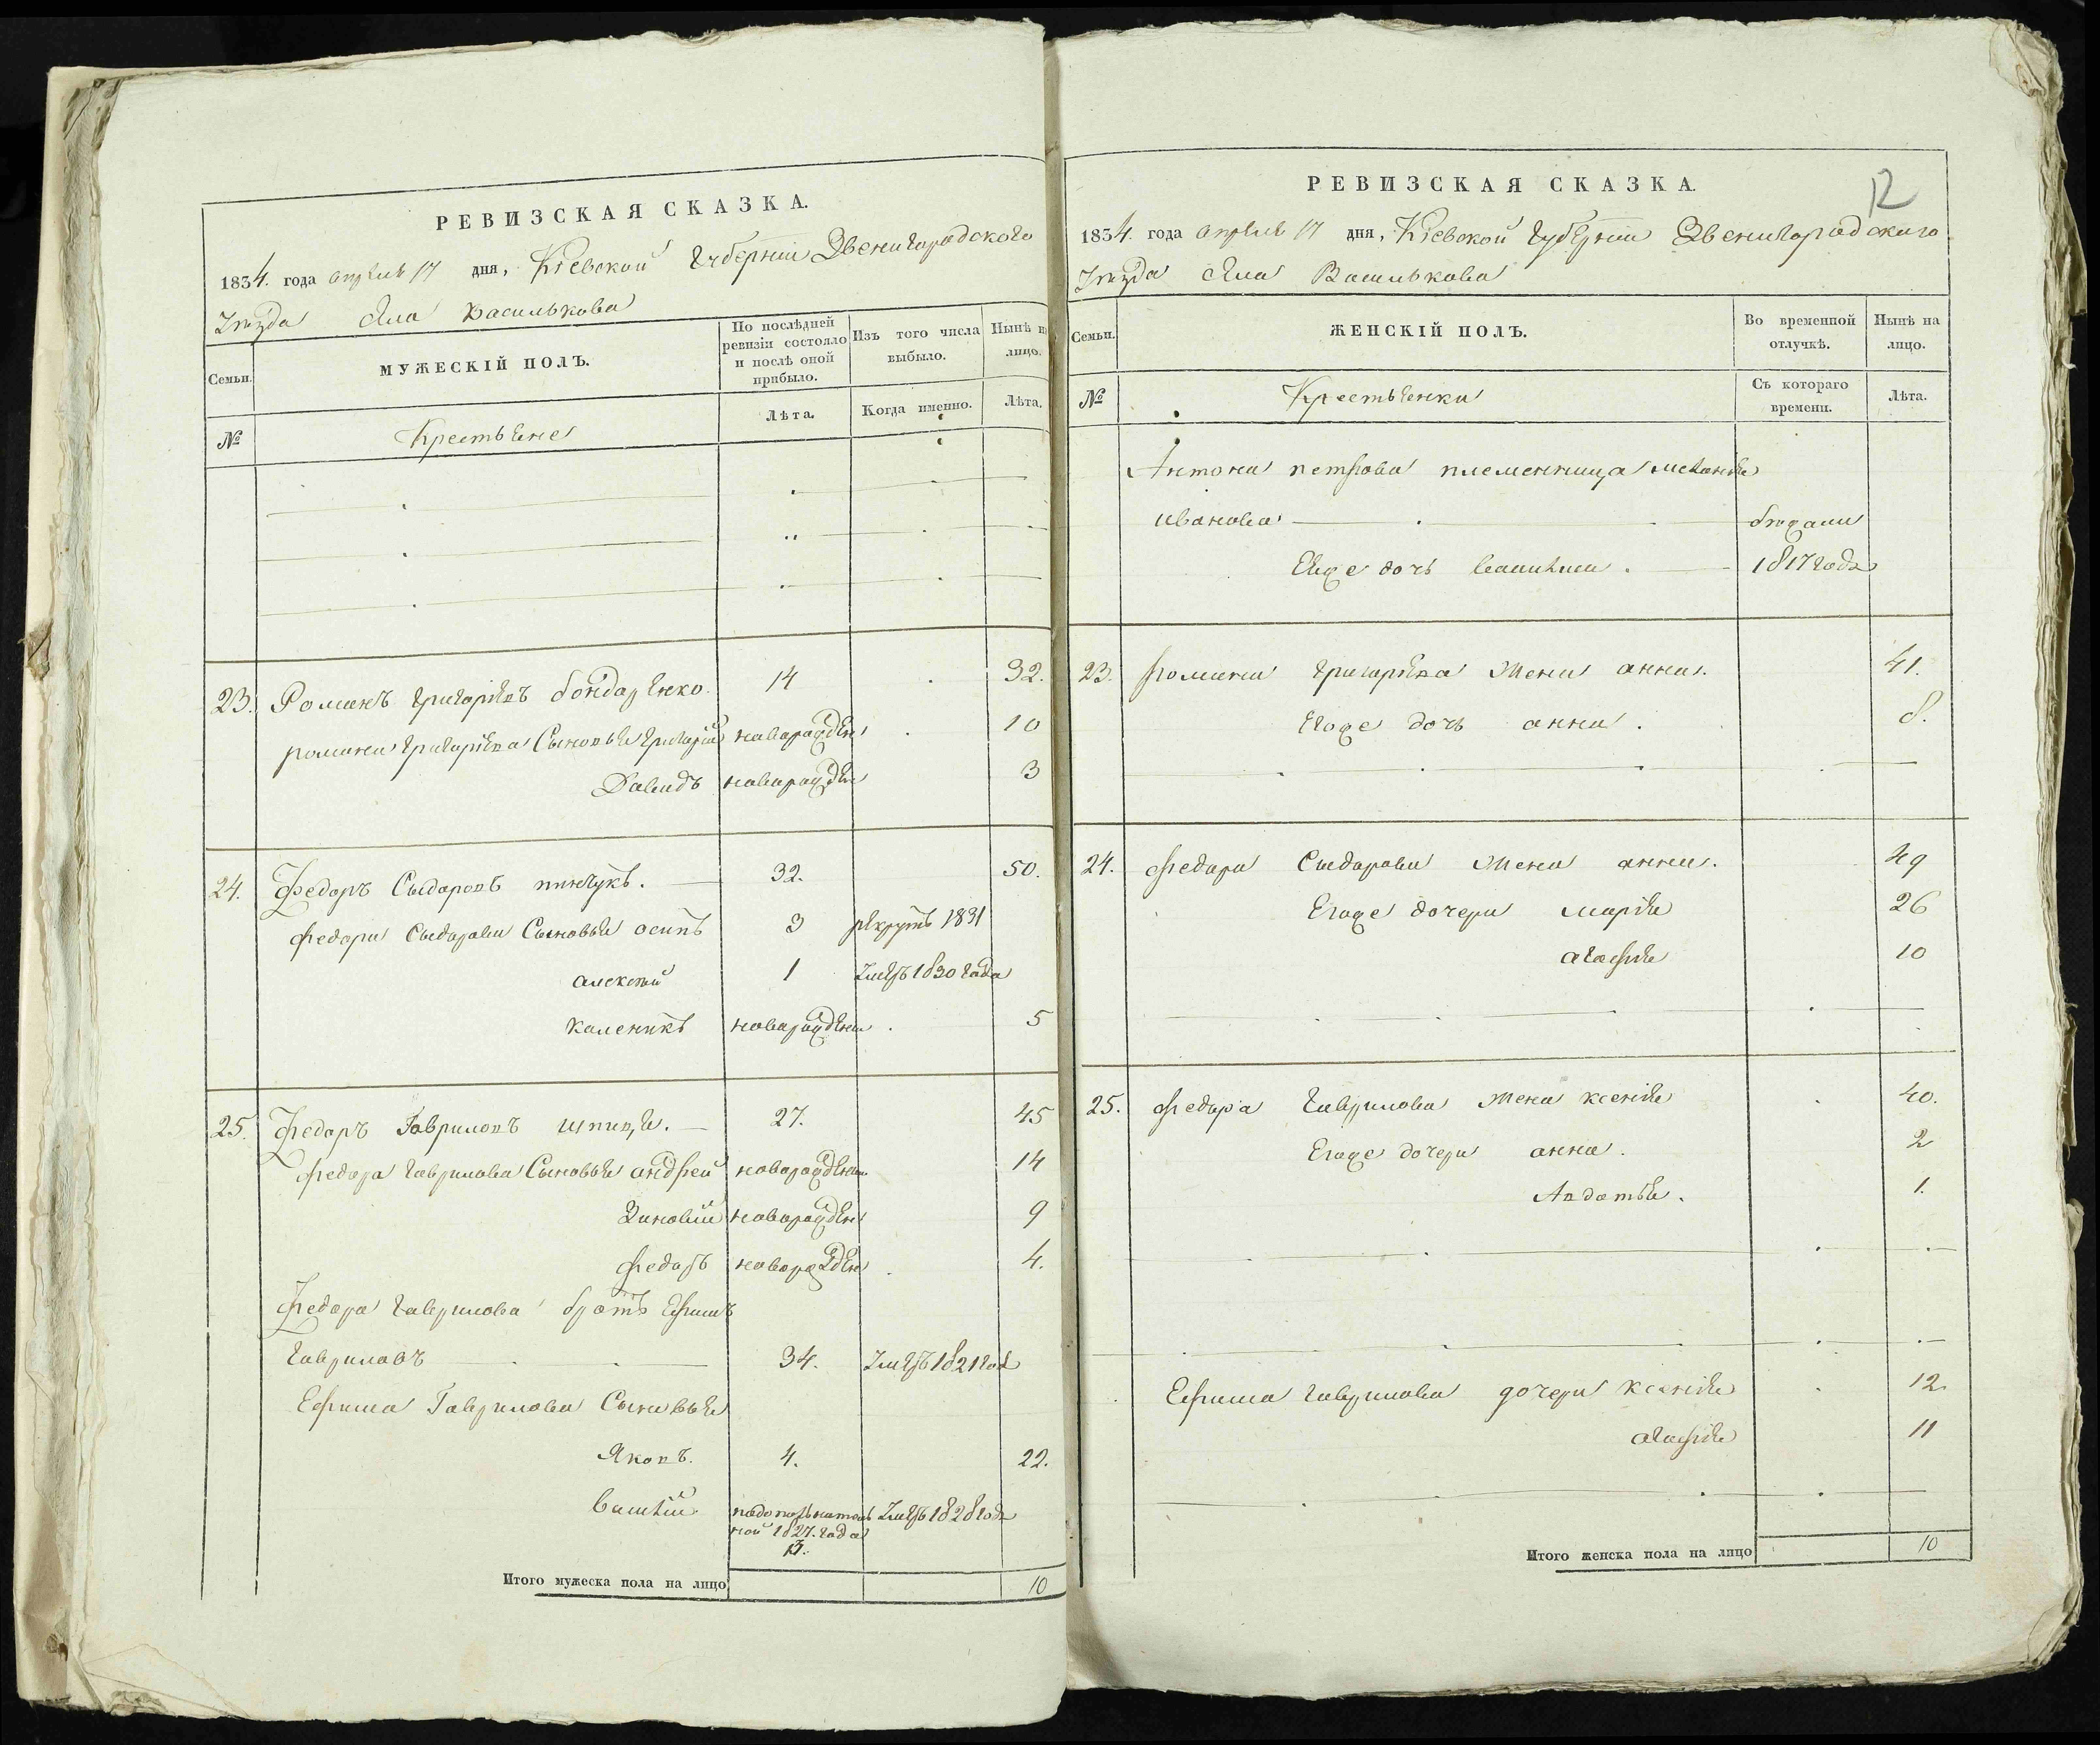 РЕВИЗСКАЯ СКАЗКА.
1834. года апреля 17 дня, Кіевской Губерніи Звенигородского
уезда села Василькова
Семьи.
МУЖЕСКІЙ ПОЛЪ.
По послѣдней ревизіи состояло и послѣ оной прибыло.
Изъ того числа выбыло.
Нынѣ на лицо.
№
Крестьяне
Лѣта.
Когда именно.
Лѣта.
23. Романъ григоріевъ бондаренко. 14 32.
романа григоріева Сыновья григорій новарожден 10
Давидъ новарожден 3
24. Федоръ Сыдоровъ пинчукъ. 32. 50.
федора Сыдорова Сыновья осипъ 3 рекрутъ 1831
алексей 1 умеръ 1830 года
каленикъ новарожден 5
25. Федоръ Гавриловъ шпица. 27. 45
федора гаврилова Сыновья андрей новарожден 14
Зиновій новарожден 9
федоръ новарожден 4.
Федора гаврилова братъ Ефимъ
гавриловъ 34. умеръ 1821 год
Ефима Гаврилова Сыновья
Яковъ. 4. 22.
василій подополнитель умеръ 1828 года
ной 1827. года
13.
Итого мужеска пола на лицо 10
12
РЕВИЗСКАЯ СКАЗКА.
1834. года апреля 17 дня, Кіевской губерніи Звенигородскаго
уезда села Василькова
Семьи.
ЖЕНСКІЙ ПОЛЪ.
Во временной отлучкѣ.
Нынѣ на лицо.
№
Крестьянки
Съ котораго времени.
Лѣта.
Антона петрова племенница меланія
иванова бежали
Еяже дочь василиса. 1817 года
23. романа григоріева жена анна. 41.
Егоже дочь анна. 8.
24. федора Сыдорова жена анна. 49
Егоже дочери марія 26
агафія 10
25. федора гаврилова жена ксенія 40.
Егоже дочери анна. 2
Авдотья. 1.
Ефима гаврилова дочери ксенія 12.
агафія 11
Итого женска пола на лицо 10